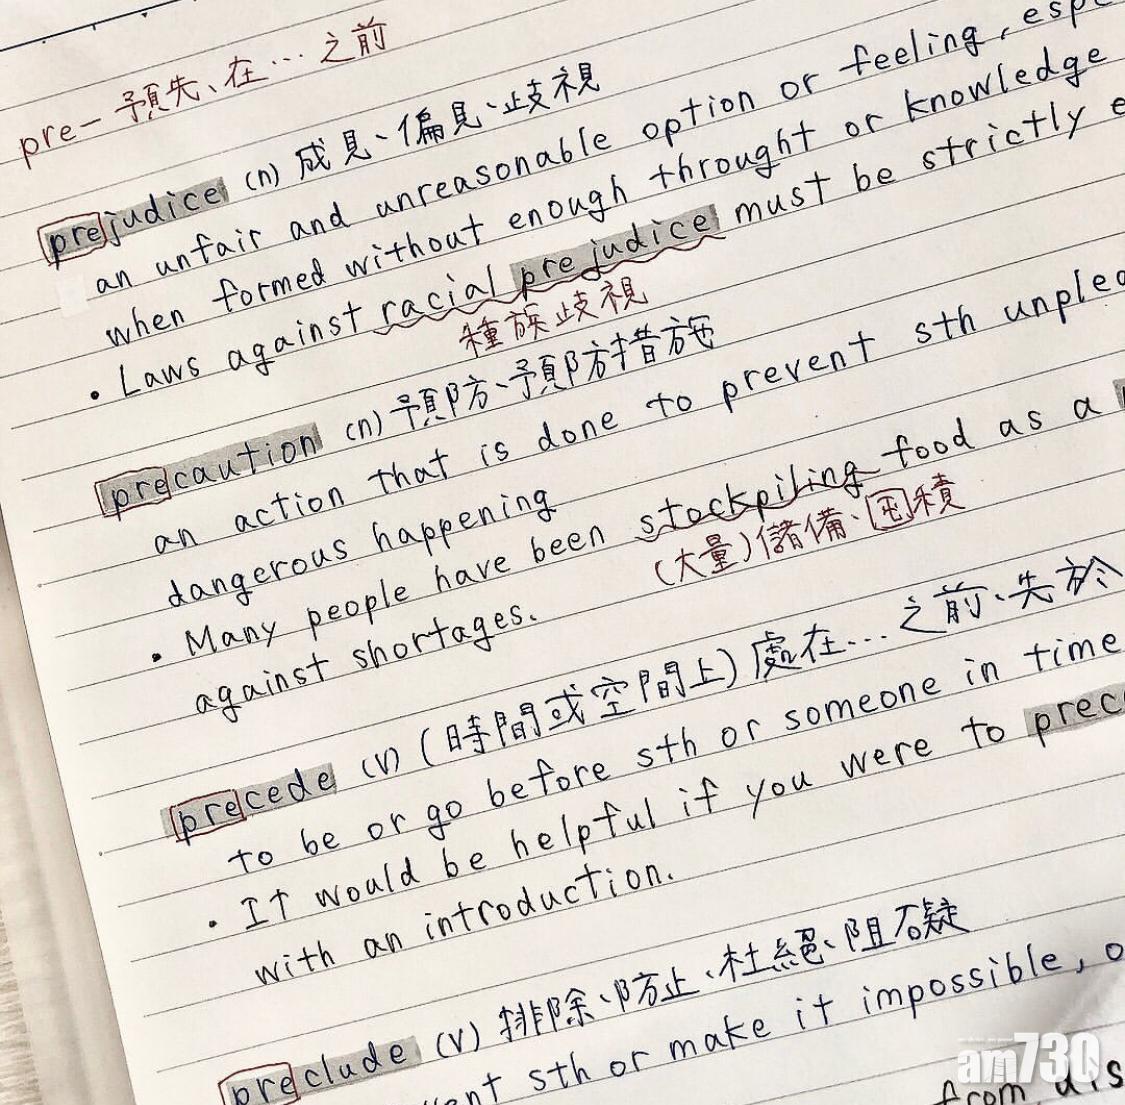 pre- 預先、在…之前
prejudice (n) 成見、偏見、歧視
an unfair and unreasonable option or feeling, esp
when formed without enough throught or knowledge
• Laws against racial prejudice must be strictly
種族歧視
precaution (n) 預防、預防措施
an action that is done to prevent sth
dangerous happening
• Many people have been stockpiling food as a
(大量)儲備、囤積
against shortages.
precede (v) (時間或空間上) 處在…之前、先於
to be or go before sth or someone in time
• It would be helpful if you were to
with an introduction.
preclude (v) 排除、防止、杜絕、阻礙
sth or make it impossible,
from
am730